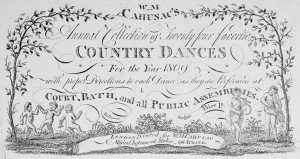 W.M
CAHUSAC'S
Annual Collection of Twenty four Favorite
COUNTRY DANCES
For the Year 1809
with proper Directions to each Dance, as they are Performed at
COURT, BATH, and all PUBLIC ASSEMBLIES,
LONDON Printed for W.M CAHUSAC
Musical Instrument Maker